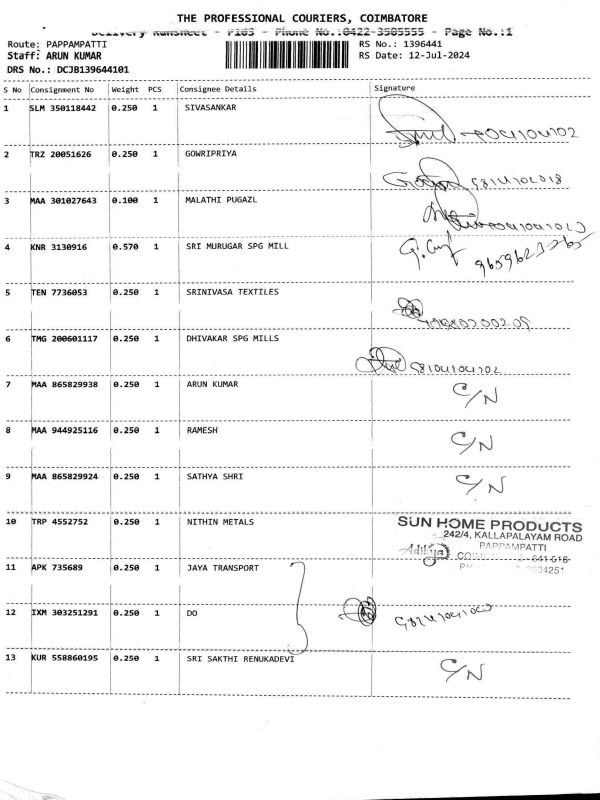 THE PROFESSIONAL COURIERS, COIMBATORE
Delivery Runsheet - P1&S - Phone No.:0422-3505555 - Page No.:1
Route: PAPPAMPATTI
RS No.: 1396441
Staff: ARUN KUMAR
RS Date: 12-Jul-2024
DRS No.: DCJB139644101
S No Consignment No Weight PCS Consignee Details Signature
1 SLM 350118442 0.250 1 SIVASANKAR
2 TRZ 20051626 0.250 1 GOWRIPRIYA
3 MAA 301027643 0.100 1 MALATHI PUGAZL
4 KNR 3130916 0.570 1 SRI MURUGAR SPG MILL
5 TEN 7736053 0.250 1 SRINIVASA TEXTILES
6 TMG 200601117 0.250 1 DHIVAKAR SPG MILLS
7 MAA 865829938 0.250 1 ARUN KUMAR C/N
8 MAA 944925116 0.250 1 RAMESH C/N
9 MAA 865829924 0.250 1 SATHYA SHRI C/N
10 TRP 4552752 0.250 1 NITHIN METALS
SUN HOME PRODUCTS
242/4, KALLAPALAYAM ROAD
PAPPAMPATTI
Adikya
11 APK 735689 0.250 1 JAYA TRANSPORT
12 IXM 303251291 0.250 1 DO
13 KUR 558860195 0.250 1 SRI SAKTHI RENUKADEVI C/N